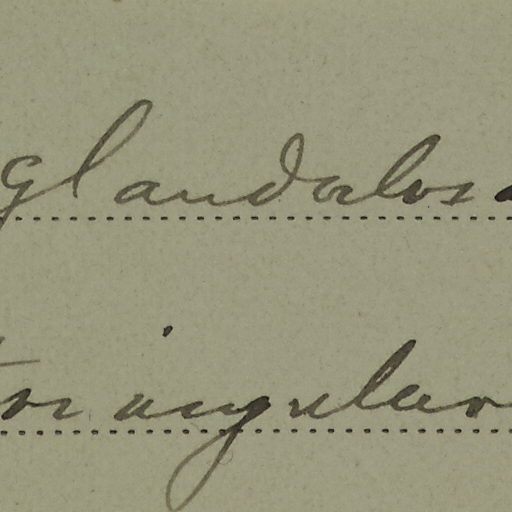 glandulos
triangular